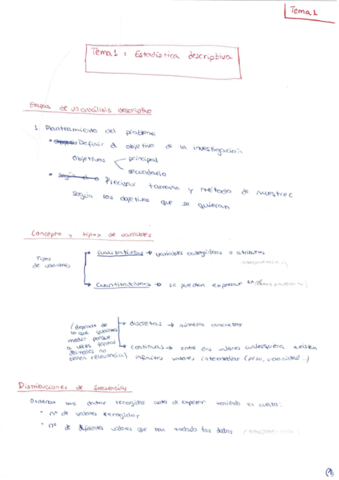 Tema 1
Tema 1: Estadística descriptiva
Etapas de un análisis descriptivo
1. Planteamiento del problema
• Definir el objetivo de la investigación
objetivos principal
secundario
• Precisar tamaño y método de muestreo
según los objetivos que se quieran
Concepto y tipos de variables
Tipos de variables
→ variables categóricas o atributos
cuantitativas → se pueden expresar
(depende de lo que queramos medir porque a veces
no tienen relevancia)
discretas → número
continuas → entre dos valores cualesquiera existen
infinitos valores intermedios (peso, )
Distribuciones de frecuencias
Ordenar los datos recogidos antes de exponer teniendo en cuenta:
• nº de valores recogidos
• nº de diferentes valores que han tomado los datos